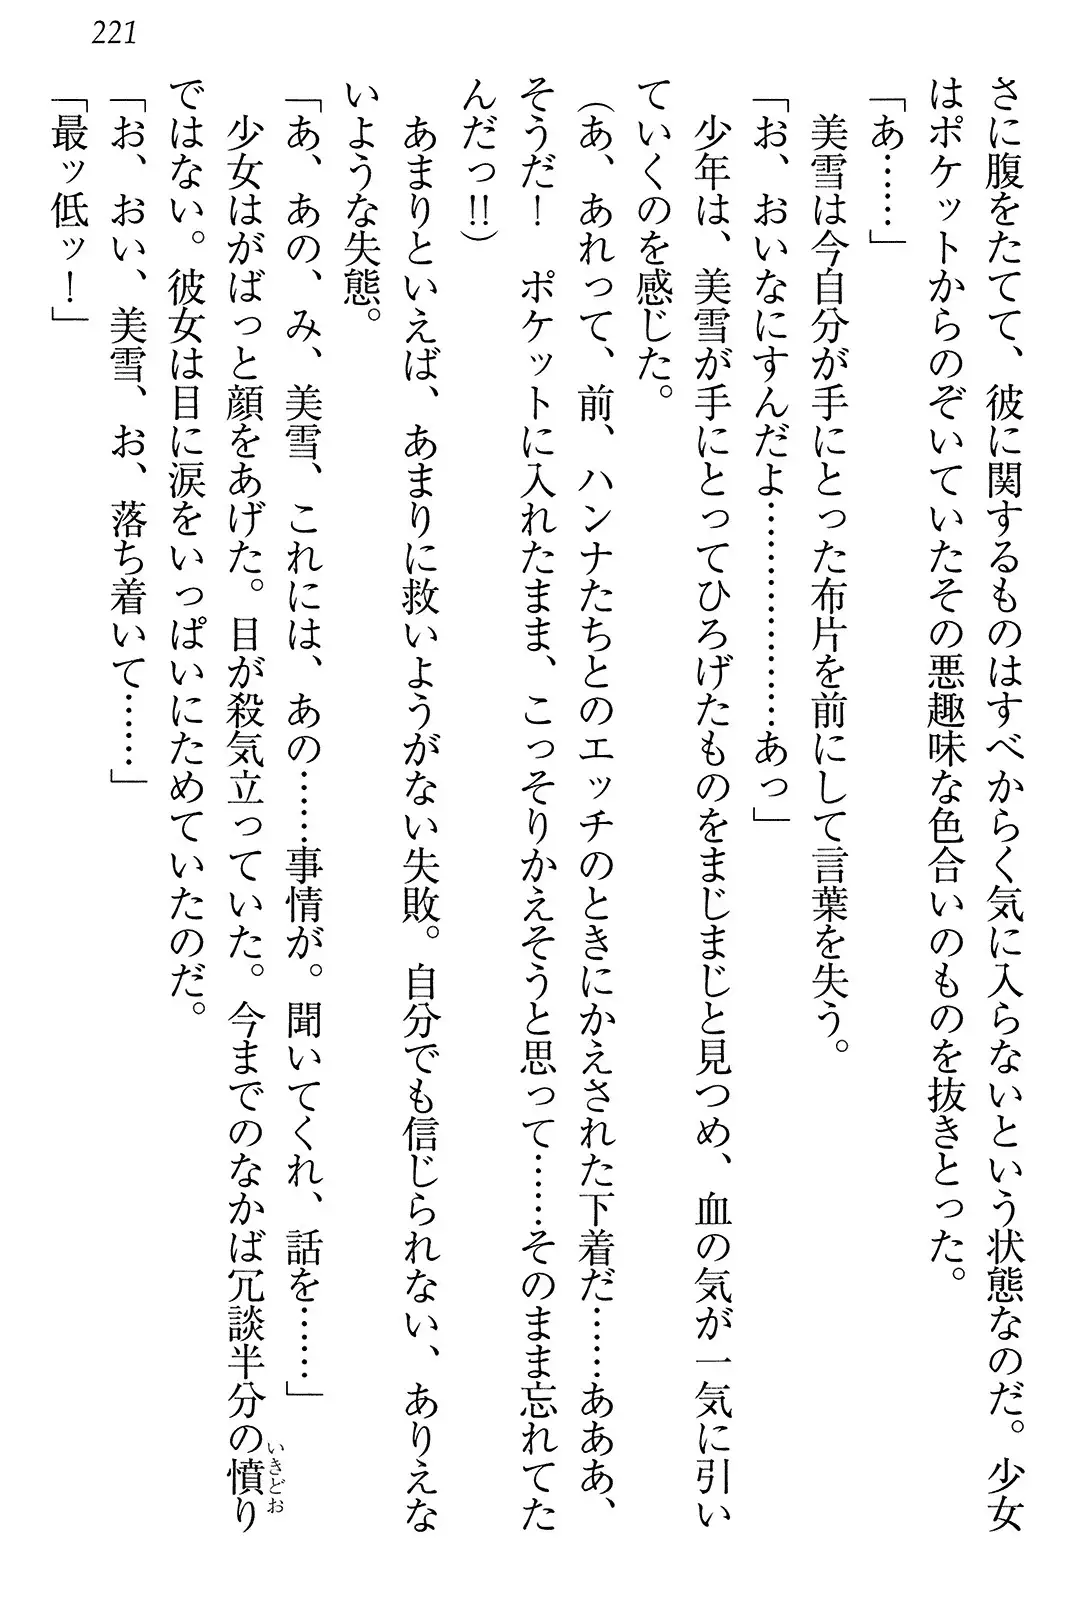 221
さに腹をたてて、彼に関するものはすべからく気に入らないという状態なのだ。少女
はポケットからのぞいていたその悪趣味な色合いのものを抜きとった。
「あ……」
美雪は今自分が手にとった布片を前にして言葉を失う。
「お、おいなにすんだよ………………あっ」
少年は、美雪が手にとってひろげたものをまじまじと見つめ、血の気が一気に引い
ていくのを感じた。
(あ、あれって、前、ハンナたちとのエッチのときにかえされた下着だ……あああ、
そうだ！　ポケットに入れたまま、こっそりかえそうと思って……そのまま忘れてた
んだっ!!)
あまりといえば、あまりに救いようがない失敗。自分でも信じられない、ありえな
いような失態。
「あ、あの、み、美雪、これには、あの……事情が。聞いてくれ、話を……」
少女はがばっと顔をあげた。目が殺気立っていた。今までのなかば冗談半分の憤り
いきどお
ではない。彼女は目に涙をいっぱいにためていたのだ。
「お、おい、美雪、お、落ち着いて……」
「最ッ低ッ！」